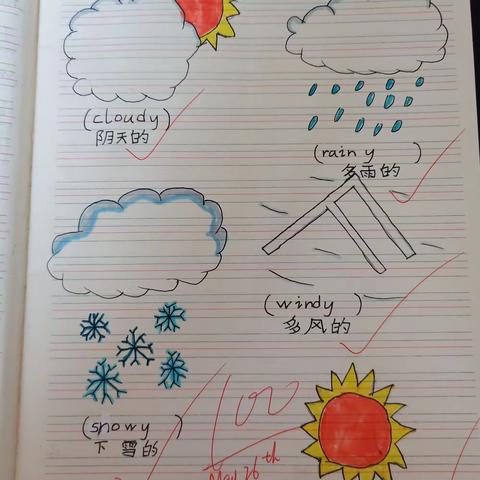 (cloudy)
阴天的
(rainy)
多雨的
(windy)
多风的
(snowy)
下雪的
100
May 26th